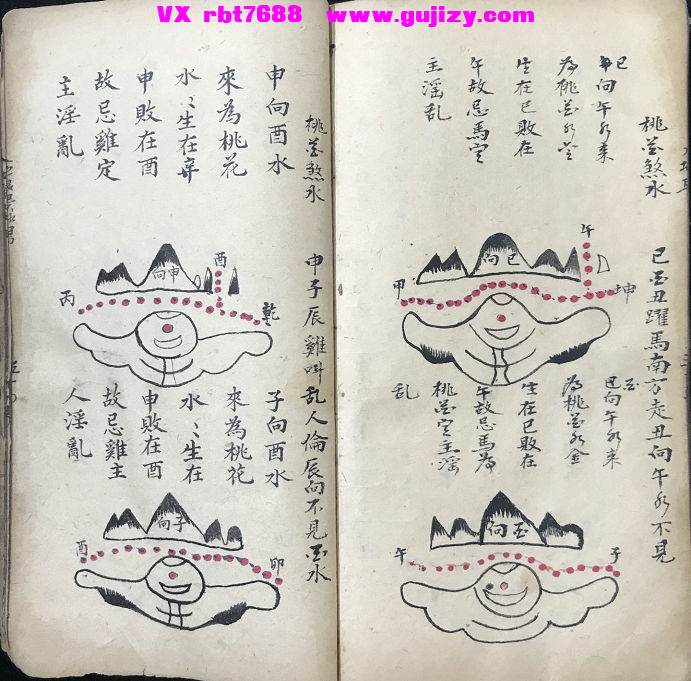 VX rbt7688 www.gujizy.com
桃花煞水
巳酉丑躍馬南方走丑向午水不見
巳向午水来
為桃花水金
生在巳敗在
午故忌馬定
主滛乱
午
巳向
甲
坤
酉向午水来
為桃花水金
生在巳敗在
午故忌馬為
桃花定主滛
乱
酉向
午
子
桃花煞水
申子辰雞叫乱人倫辰向不見酉水
申向酉水
來為桃花
水〻生在
申敗在酉
故忌雞定
主淫亂
酉
申向
丙
乾
子向酉水
來為桃花
水〻生在
申敗在酉
故忌雞主
人淫亂
子向
酉
卯